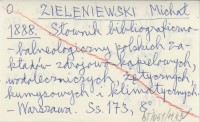 O ZIELENIEWSKI Michał
1888. Słownik bibliograficzno-
-balneologiczny polskich za-
kładów zdrojowo kąpielowych,
wodoleczniczych żętycznych,
kumysowych i klimatycznych.
- Warszawa Ss. 175, 8°